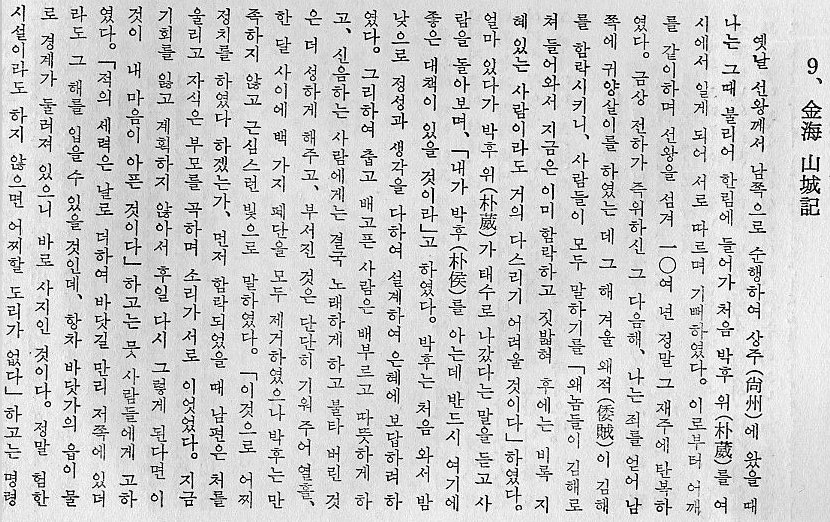 9、金海 山城記
옛날 선왕께서 남쪽으로 순행하여 상주(尙州)에 왔을 때
나는 그때 불리어 한림에 들어가 처음 박후 위(朴葳)를 여
시에서 알게 되어 서로 따르며 기뻐하였다。이로부터 어깨
를 같이하며 선왕을 섬겨 一〇여 년 정말 그 재주에 탄복하
였다。금상 전하가 즉위하신 그 다음해、나는 죄를 얻어 남
쪽에 귀양살이를 하였는데 그 해 겨울 왜적(倭賊)이 김해
를 함락시키니、사람들이 모두 말하기를「왜놈들이 김해로
쳐 들어와서 지금은 이미 함락하고 짓밟혀 후에는 비록 지
혜 있는 사람이라도 거의 다스리기 어려울 것이다」하였다。
얼마 있다가 박후 위(朴葳)가 태수로 나갔다는 말을 듣고 사
람을 돌아보며、「내가 박후(朴侯)를 아는데 반드시 여기에
좋은 대책이 있을 것이라」고 하였다。박후는 처음 와서 밤
낮으로 정성과 생각을 다하여 설계하여 은혜에 보답하려 하
였다。그리하여 춥고 배고픈 사람은 배부르고 따뜻하게 하
고、신음하는 사람에게는 결국 노래하게 하고 불타 버린 것
은 더 성하게 해주고、부서진 것은 단단히 기워 주어 열흘、
한 달 사이에 백 가지 폐단을 모두 제거하였으나 박후는 만
족하지 않고 근심스런 빛으로 말하였다。「이것으로 어찌
정치를 하였다 하겠는가、먼저 함락되었을 때 남편은 처를
울리고 자식은 부모를 곡하며 소리가 서로 이엇었다。지금
기회를 잃고 계획하지 않아서 후일 다시 그렇게 된다면 이
것이 내 마음이 아픈 것이다」하고는 뭇 사람들에게 고하
였다。「적의 세력은 날로 더하여 바닷길 만리 저쪽에 있더
라도 그 해를 입을 수 있을 것인데、항차 바닷가의 읍이 물
로 경계가 둘러져 있으니 바로 사지인 것이다。정말 험한
시설이라도 하지 않으면 어찌할 도리가 없다」하고는 명령